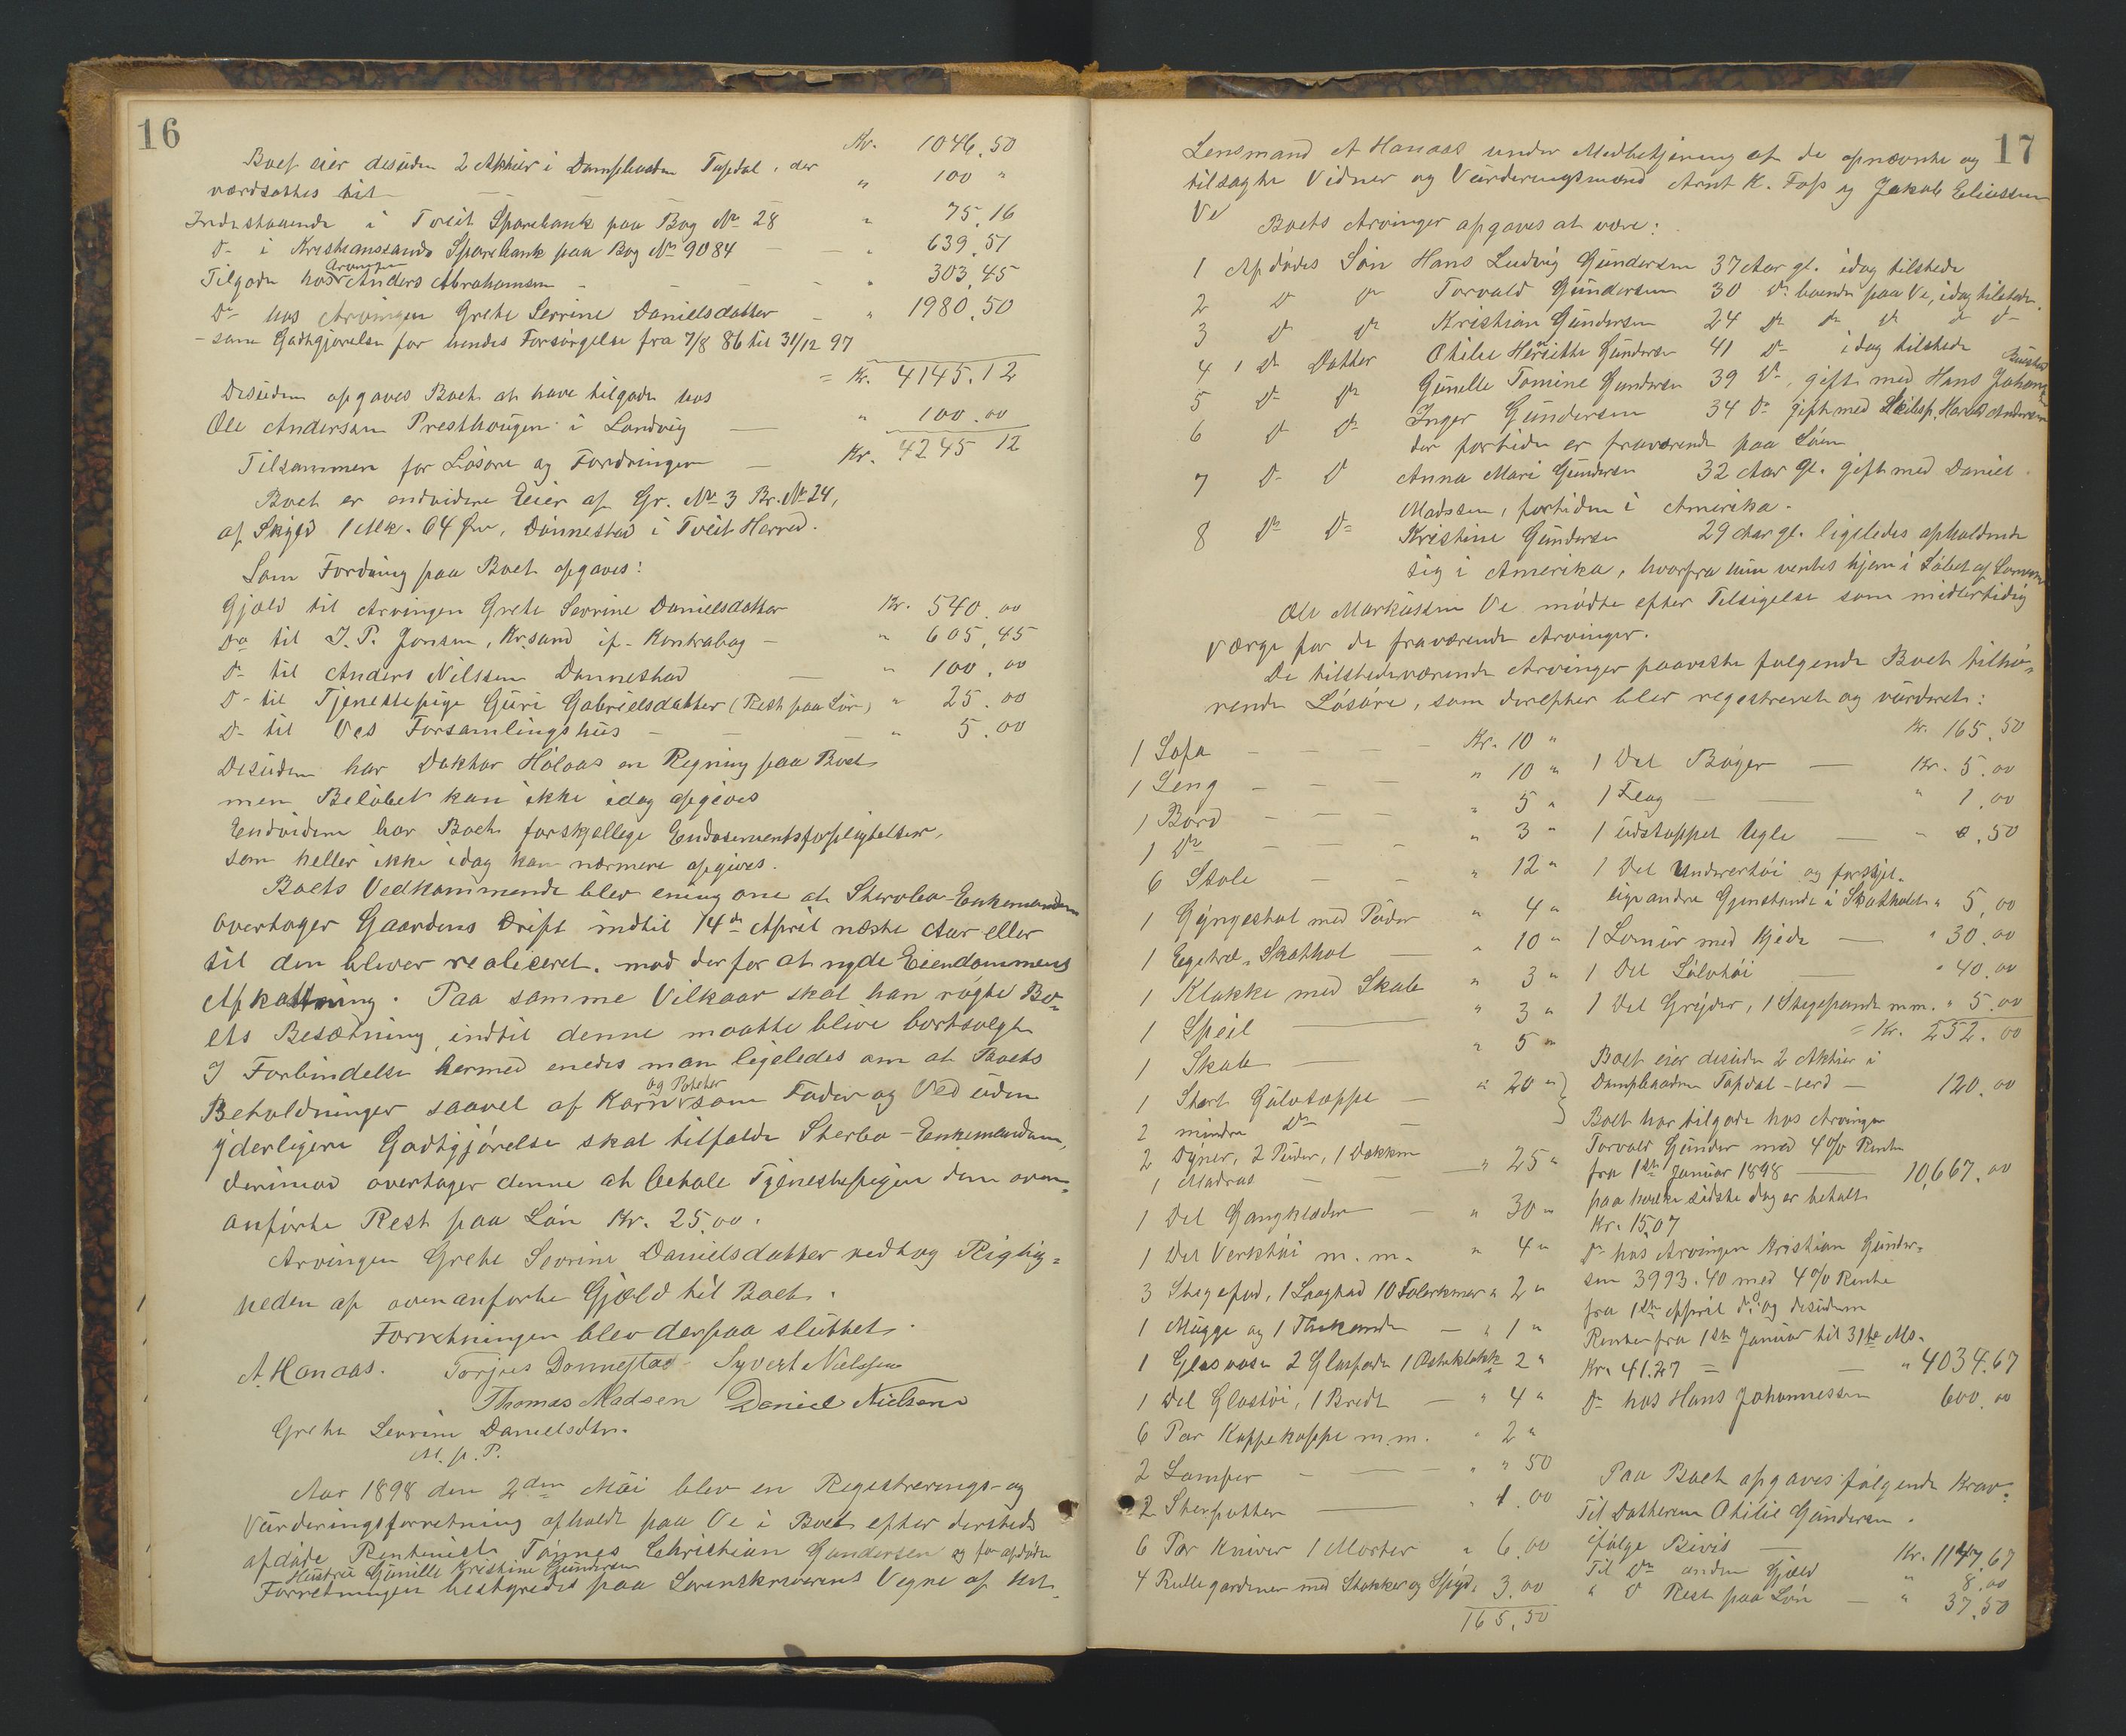 16
Kr. 1046.50
Boet eier desuden 2 Aktier i Dampbaaden Topdal, der
værdsattes til — " 100 "
Indestaaende i Tveit Sparebank paa Bog No 28 " 75.16
Do i Kristianssands Sparebank paa Bog No 9084 — " 639.51
Arvingen
Tilgode hos Anders Abrahamsen — " 303.45
Do hos Arvingen Grethe Serine Danielsdatter — " 1980.50
- som Godtgjørelse for hendes Forsørgelse fra 7/8 86 til 31/12 97
= Kr. 4145.12
Desuden opgaves Boet at have tilgode hos
Ole Andersen Presthougen i Landvig — " 100.00
Tilsammen for Løsøre og Fordringer — Kr. 4245 12
Boet er endvidere Eier af Gr. No 3 Br. No 24,
af Skyld 1 Mk. 64 Øre, Dønnestad i Tveit Herred.
Som Fordring paa Boet opgaves:
Gjæld til Arvingen Grete Sevrine Danielsdatter Kr. 540.00
Do til J. P. Jensen, Kr.sand if. Kontrabog — " 605.45
Do til Anders Nilssen Dønnestad — " 100.00
Do til Tjenestepige Guri Gabrielsdatter (Rest paa Løn) " 25.00
Do til Ves Forsamlingshus — " 5.00
Desuden har Doktor Holaas en Regning paa Boet
men Beløbet kan ikke idag opgives
Endvidere har Boet forskjellige Endosementsforpligtelser,
som heller ikke idag kan nærmere opgives.
Boets Vedkommende blev enig om at Stervbo-Enkemanden
overtager Gaardens Drift indtil 14de April næste Aar eller
til den bliver realiseret, mod derfor at nyde Eiendommens
Afkastning. Paa samme Vilkaar skal han røgte Bo-
ets Besætning, indtil denne maatte blive bortsolgt
I Forbindelse hermed enedes man ligeledes om at Boets
og Poteter
Beholdninger saavel af Korn som Foder og Ved uden
yderligere Godtgjørelse skal tilfalde Sterbo-Enkemanden,
derimod overtager denne at betale Tjenestepigen den oven-
anførte Rest paa Løn Kr. 25.00.
Arvingen Grethe Sevrine Danielsdatter vedtog Rigtig-
heden af ovenanførte Gjæld til Boet.
Forretningen blev derpaa sluttet.
A. Hanaas. Torjus Dønnestad Syvert Nielssen
Thomas Madsen Daniel Nielsen
Grethe Sevrine Danielsdtr.
M. p. P.
Aar 1898 den 2den Mai blev en Registrerings- og
Vurderingsforretning afholdt paa Ve i Boet efter dersteds
afdøde Rentenist Tønnes Christian Gundersen og før afdøde
Hustru Gunille Kristine Gundersen
Forretningen bestyredes paa Sorenskriverens Vegne af kst.
17
Lensmand A Hanaas under Medbetjening af de opnævnte og
tilsagte Vidner og Vurderingsmænd Arnt K. Foss og Jakob Eliassen
Ve
Boets Arvinger opgaves at være:
1 Afdødes Søn Hans Ludvig Gundersen 37 Aar gl. idag tilstede
2 Do Do Torvald Gundersen 30 Do boende paa Ve, idag tilstede
3 Do Do Kristian Gundersen 24 Do Do Do Do Do
4 1 Do Datter Otilie Henriette Gundersen 41 Do idag tilstede
5 Do Do Gunille Tomine Gundersen 39 Do, gift med Hans Johannes
6 Do Do Inger Gundersen 34 Do gift med Skibsf. Harald Andersen
der fortiden er fraværende paa Søen
7 Do Do Anna Mari Gundersen 32 Aar gl. gift med Daniel
Madssen, fortiden i Amerika.
8 Do Do Kristine Gundersen 29 Aar gl. ligeledes opholdende
sig i Amerika, hvorfra hun ventes hjem i Løbet af Sommeren
Ole Markussen Ve mødte efter Tilsigelse som midlertidig
Værge for de fraværende Arvinger.
De tilstedeværende Arvinger paaviste følgende Boet tilhø-
rende Løsøre, som derefter blev registreret og vurderet:
1 Sofa — Kr. 10 "
1 Seng — " 10 "
1 Bord — " 5 "
1 Do — " 3 "
6 Stole — " 12 "
1 Gyngestol med Puder " 4 "
1 Egetræ-Skathol — " 10 "
1 Klokke med Skab " 3 "
1 Speil — " 3 "
1 Skab — " 5 "
1 Stort Gulvtæppe — " 20 "
2 mindre Do —
2 Dyner, 2 Puder, 1 Dækken
1 Madras — " 25 "
1 Del Gangklæder — " 30 "
1 Del Verktøi m. m. " 4 "
3 Stegefad, 1 Laagfad 10 Talerkener " 2 "
1 Mugge og 1 Thekande — " 1 "
1 Glasvase 2 Glasfade 1 Osteklokke 2 "
1 Del Glastøi, 1 Bredt — " 4 "
6 Par Kaffekoppe m.m. " 2 "
2 Lamper — " " 50
2 Sterpotter — " 1.00
6 Par Kniver 1 Morter " 6.00
4 Rullegardiner med Stokker og Spyd. 3.00
165.50
Kr. 165.50
1 Del Bøger — Kr. 5.00
1 Flag — " 1.00
1 udstoppet Ugle — " 0.50
1 Del Undvertøi og forskjel-
lige andre Gjenstande i Skatholet " 5.00
1 Lomur med Kjede — " 30.00
1 Del Sølvtøi — " 40.00
1 Del Gryder, 1 Stegepande m.m. " 5.00
= Kr. 252.00
Boet eier desuden 2 Aktier i
Dampbaaden Topdal - verd — 120.00
Boet har tilgode hos Arvingen
Torvald Gunder med 4% Rente
fra 1ste Januar 1898 — 10,667.00
paa hvilke sidste dag er betalt
Kr. 15.07
Do hos Arvingen Kristian Gunder-
sen 3993.40 med 4% Rente
fra 1ste April d.A. og desuden
Renter fra 1ste Januar til 31te Ms.
Kr. 41.27 = — " 4034.67
Do hos Hans Johannessen 600.00
Paa Boet opgaves følgende Krav:
Til Datteren Otilie Gundersen.
ifølge Bevis — Kr. 1147.67
Til Do anden Gjæld " 8.00
" Do Rest paa Løn — " 37.50